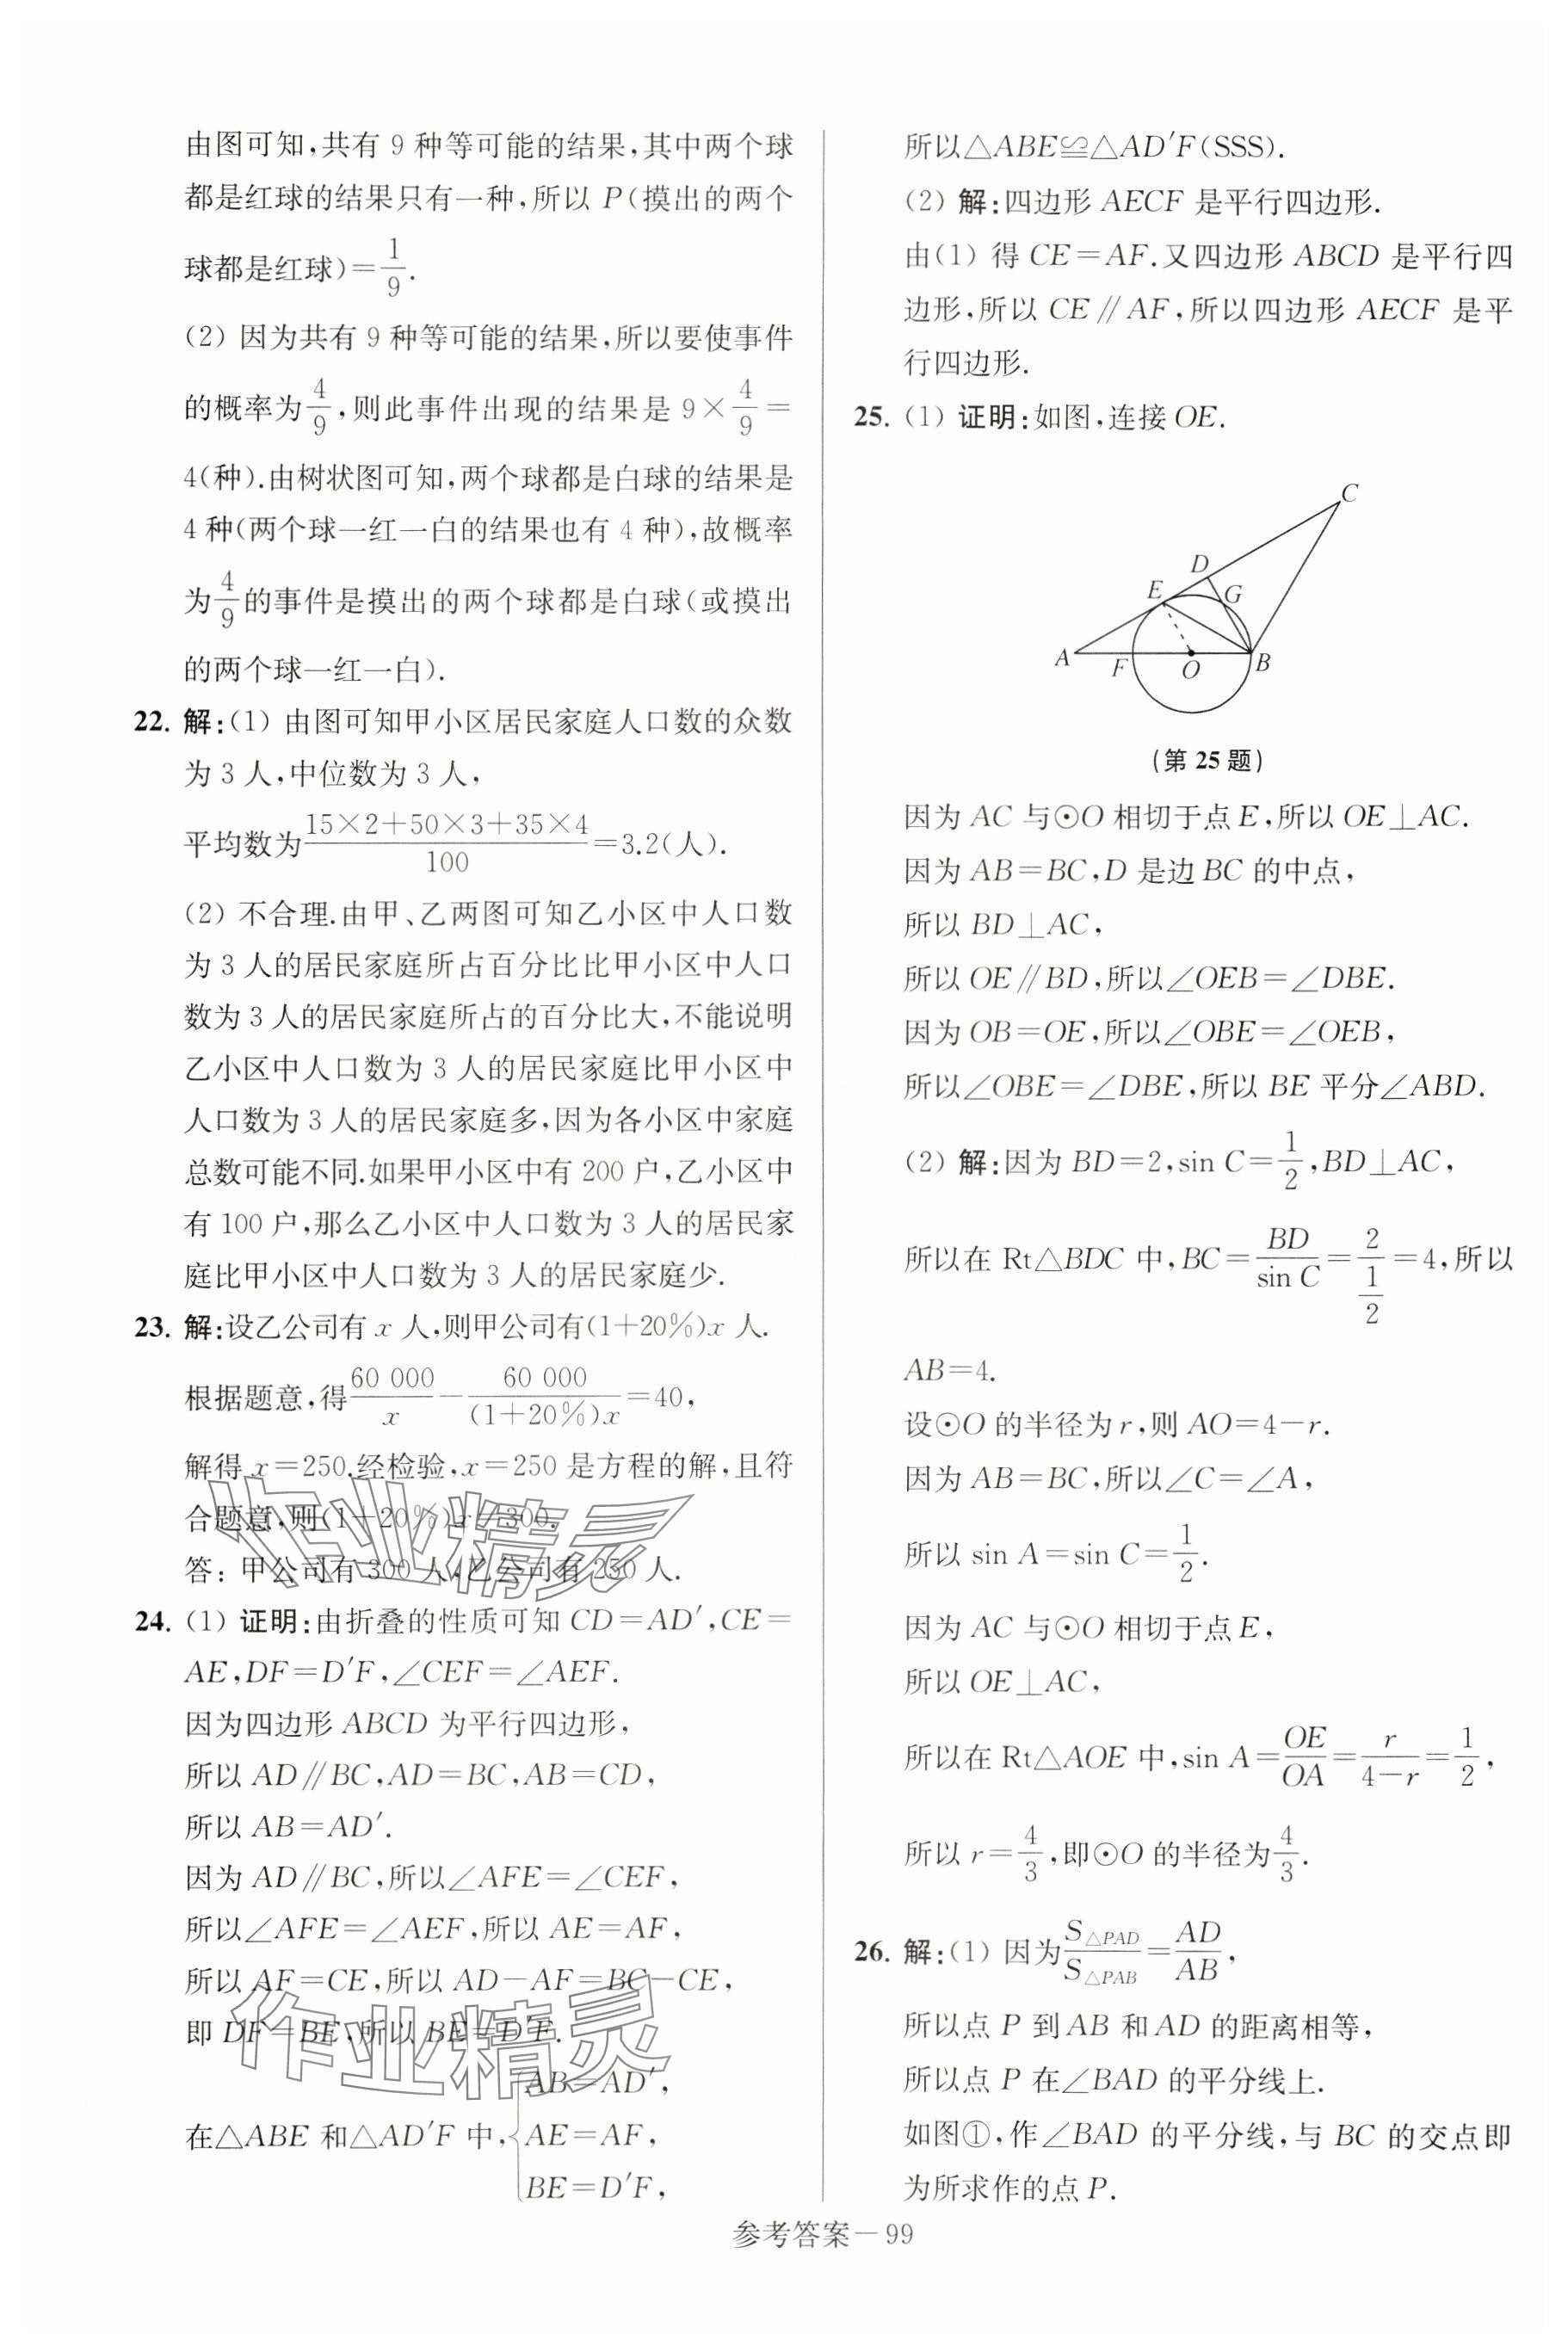 由图可知,共有 9 种等可能的结果,其中两个球
都是红球的结果只有一种,所以 P(摸出的两个
球都是红球)=1/9.
(2) 因为共有 9 种等可能的结果,所以要使事件
的概率为4/9,则此事件出现的结果是 9×4/9=
4(种).由树状图可知,两个球都是白球的结果是
4 种(两个球一红一白的结果也有 4 种),故概率
为4/9的事件是摸出的两个球都是白球(或摸出
的两个球一红一白).
22. 解:(1) 由图可知甲小区居民家庭人口数的众数
为 3 人,中位数为 3 人,
平均数为(15×2+50×3+35×4)/100=3.2(人).
(2) 不合理.由甲、乙两图可知乙小区中人口数
为 3 人的居民家庭所占百分比比甲小区中人口
数为 3 人的居民家庭所占的百分比大,不能说明
乙小区中人口数为 3 人的居民家庭比甲小区中
人口数为 3 人的居民家庭多,因为各小区中家庭
总数可能不同.如果甲小区中有 200 户,乙小区中
有 100 户,那么乙小区中人口数为 3 人的居民家
庭比甲小区中人口数为 3 人的居民家庭少.
23. 解:设乙公司有 x 人,则甲公司有(1+20%)x 人.
根据题意,得60 000/x-60 000/((1+20%)x)=40,
解得 x=250.经检验,x=250 是方程的解,且符
合题意,则(1+20%)x=300.
答: 甲公司有 300 人,乙公司有 250 人.
24. (1) 证明:由折叠的性质可知 CD=AD′,CE=
AE,DF=D′F,∠CEF=∠AEF.
因为四边形 ABCD 为平行四边形,
所以 AD∥BC,AD=BC,AB=CD,
所以 AB=AD′.
因为 AD∥BC,所以∠AFE=∠CEF,
所以∠AFE=∠AEF,所以 AE=AF,
所以 AF=CE,所以 AD-AF=BC-CE,
即 DF=BE,所以 BE=D′F.
AB=AD′,
在△ABE 和△AD′F 中,{AE=AF,
BE=D′F,
所以△ABE≌△AD′F(SSS).
(2) 解:四边形 AECF 是平行四边形.
由(1) 得 CE=AF.又四边形 ABCD 是平行四
边形,所以 CE∥AF,所以四边形 AECF 是平
行四边形.
25. (1) 证明:如图,连接 OE.
C
D
E
G
A
F
O
B
(第 25 题)
因为 AC 与⊙O 相切于点 E,所以 OE⊥AC.
因为 AB=BC,D 是边 BC 的中点,
所以 BD⊥AC,
所以 OE∥BD,所以∠OEB=∠DBE.
因为 OB=OE,所以∠OBE=∠OEB,
所以∠OBE=∠DBE,所以 BE 平分∠ABD.
(2) 解:因为 BD=2,sin C=1/2,BD⊥AC,
所以在 Rt△BDC 中,BC=BD/sin C=2/(1/2)=4,所以
AB=4.
设⊙O 的半径为 r,则 AO=4-r.
因为 AB=BC,所以∠C=∠A,
所以 sin A=sin C=1/2.
因为 AC 与⊙O 相切于点 E,
所以 OE⊥AC,
所以在 Rt△AOE 中,sin A=OE/OA=r/(4-r)=1/2,
所以 r=4/3,即⊙O 的半径为4/3.
26. 解:(1) 因为S△PAD/S△PAB=AD/AB,
所以点 P 到 AB 和 AD 的距离相等,
所以点 P 在∠BAD 的平分线上.
如图①,作∠BAD 的平分线,与 BC 的交点即
为所求作的点 P.
作业精灵
作业精灵
参考答案—99